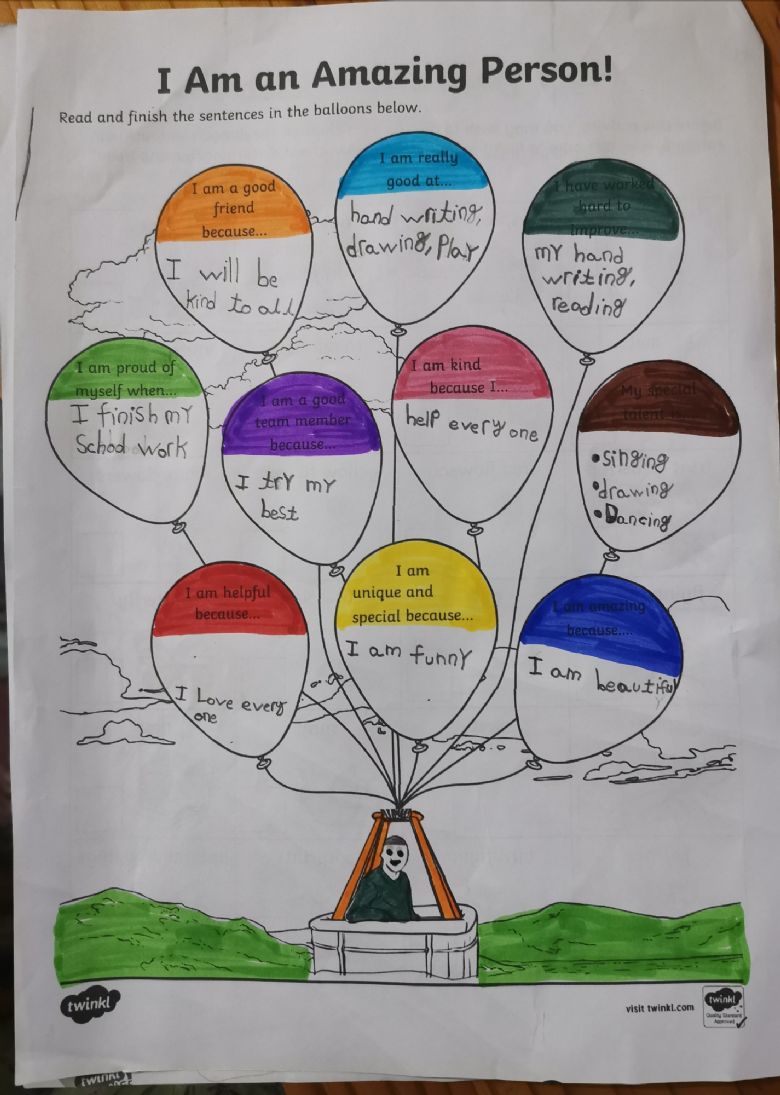 I Am an Amazing Person!
Read and finish the sentences in the balloons below.
I am a good
friend
because...
I will be
kind to all
I am really
good at...
hand writing,
drawing, Play
I have worked
hard to
improve...
my hand
writing,
reading
I am proud of
myself when...
I finish my
School work
I am a good
team member
because...
I try my
best
I am kind
because I...
help every one
My special
talent is...
• singing
• drawing
• Dancing
I am helpful
because...
I Love every
one
I am
unique and
special because...
I am funny
I am amazing
because....
I am beautiful
twinkl
visit twinkl.com
twinkl
Quality Standard
Approved
twinkl